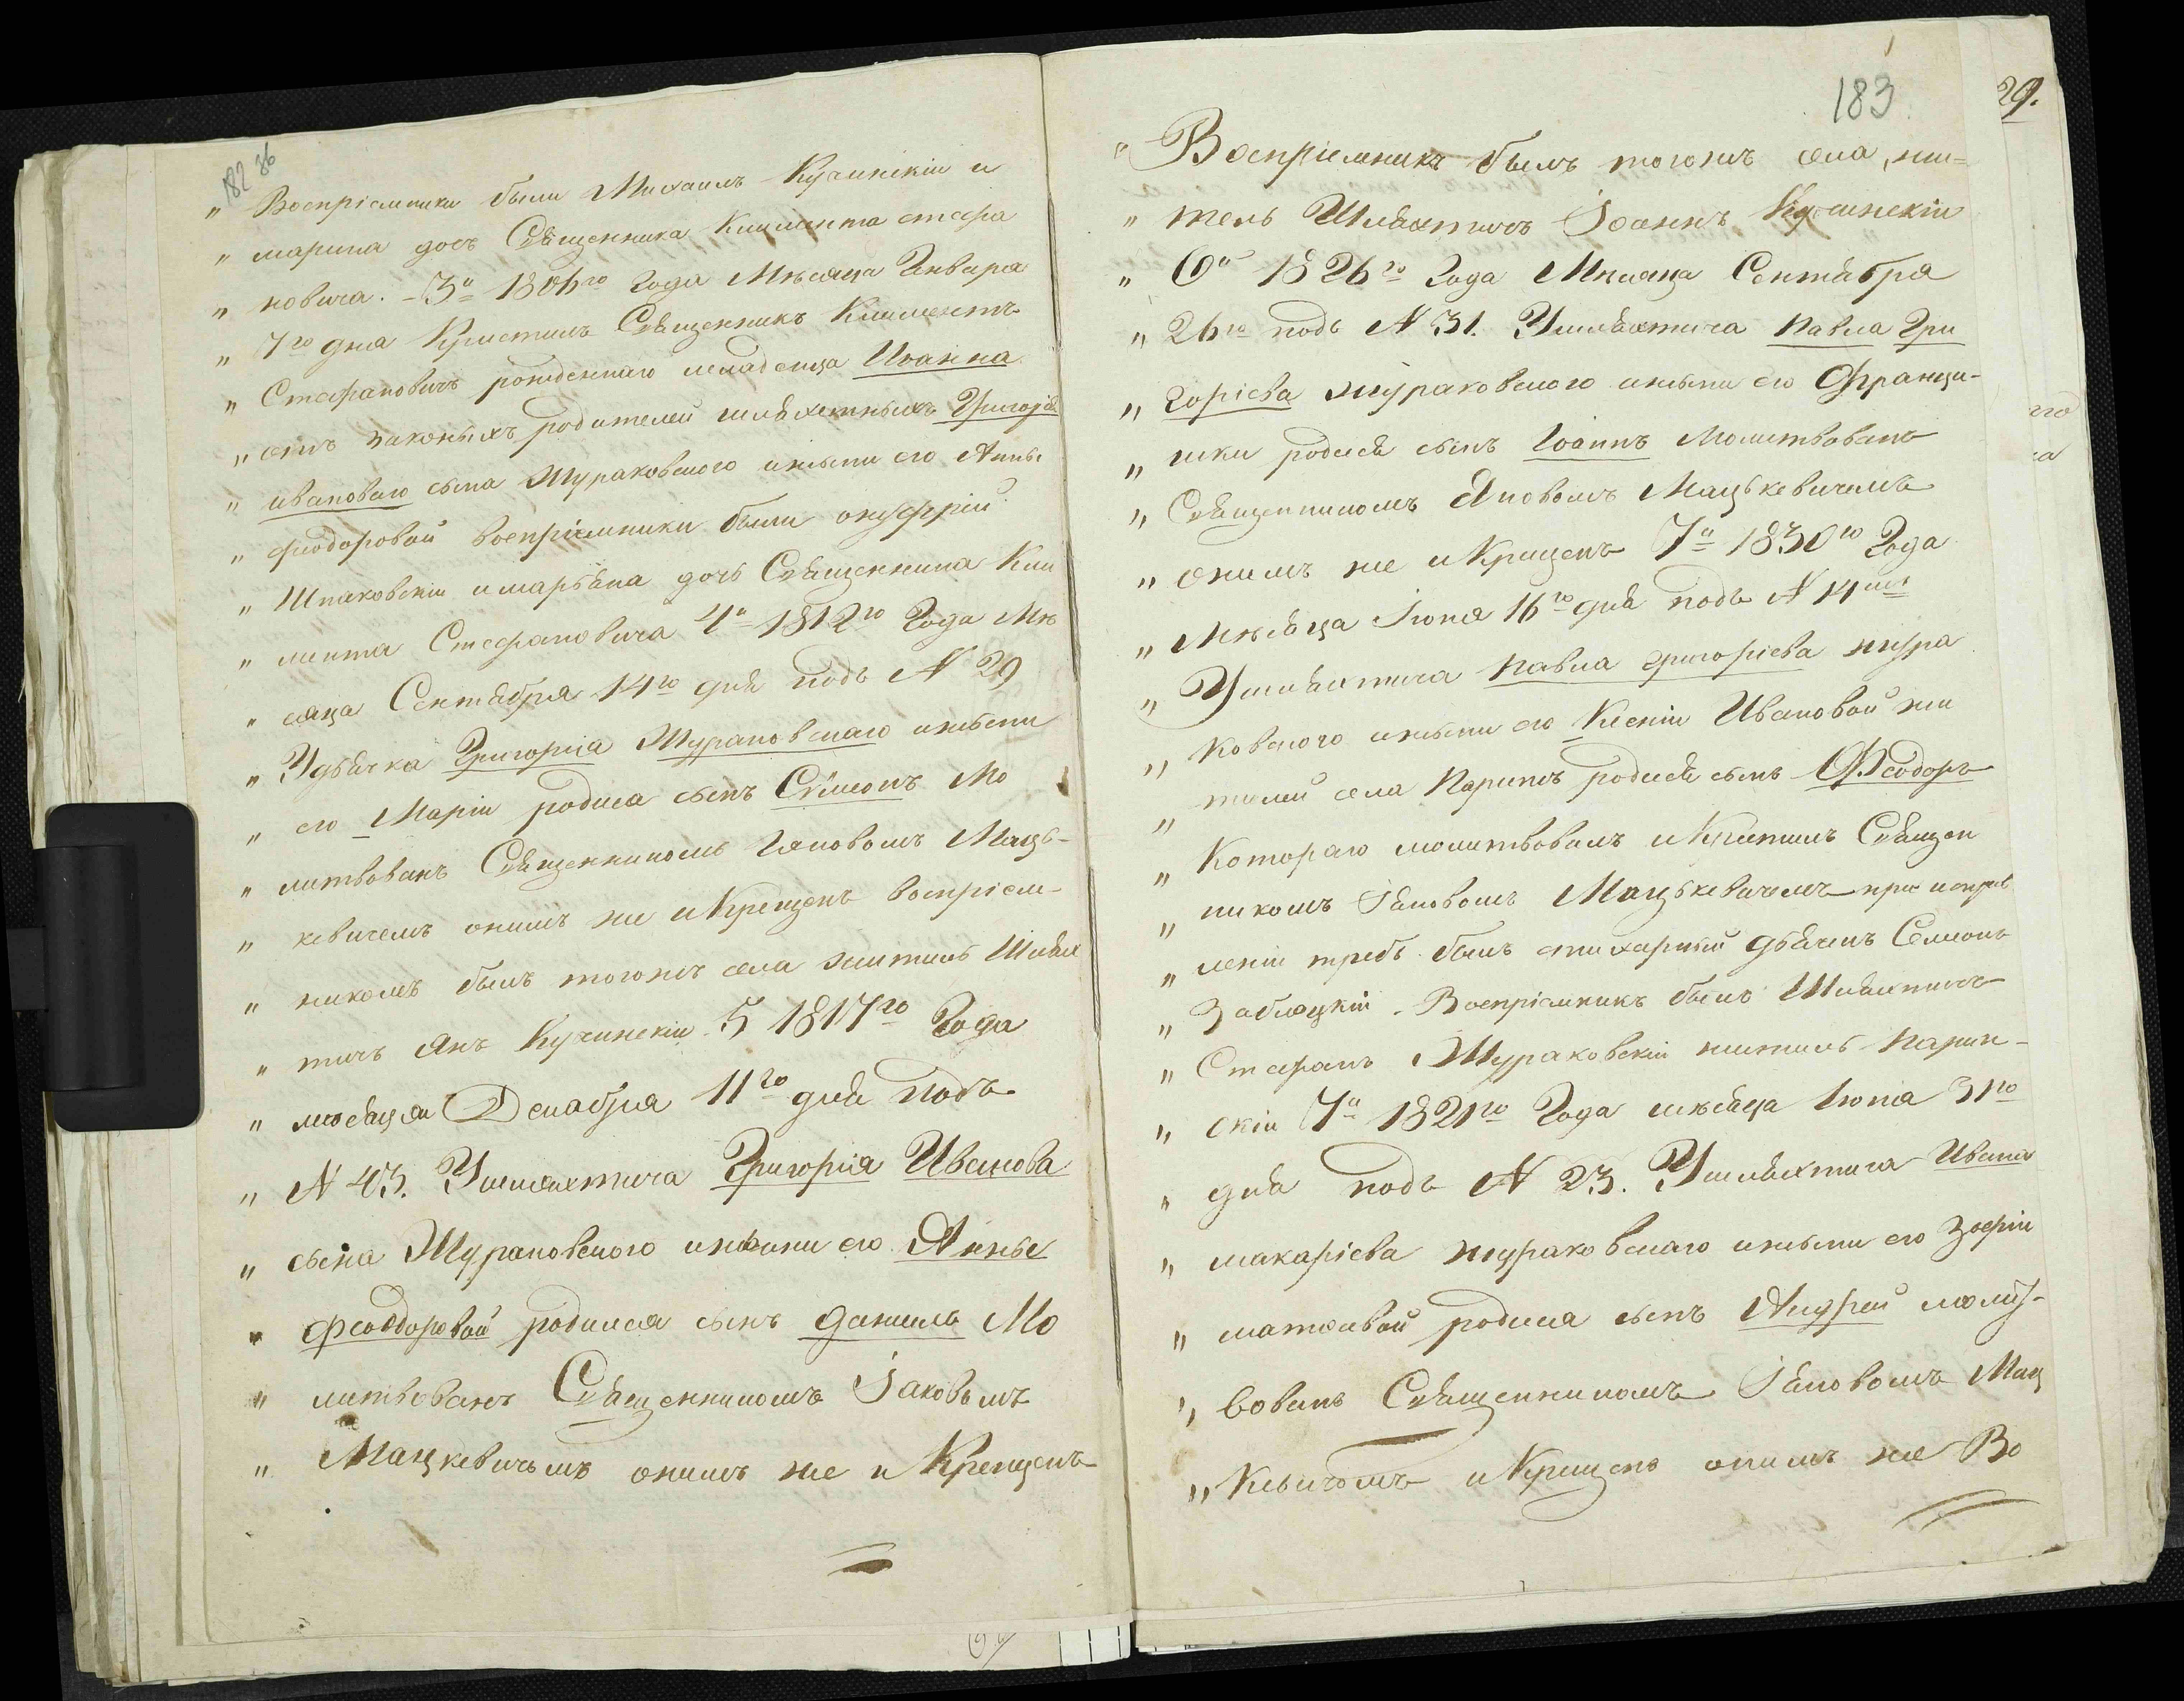 182 об
„ Воспріемники были Михаилъ Кучинскій и
„ марина дочь Священника Климента стефа
„ новича. – 3е 1806го Года Мѣсяца Генвара
„ 7го дня Крестилъ Священникъ Климентъ
„ Стефановичъ рожденнаго младенца Иоанна
„ отъ законыхъ родителей шляхетныхъ Григорія
„ ивановаго сына Жураковского ижены его Анны
„ феодоровой воспріемники были онуфрій
„ Шпаковскій имарьяна дочь Священника Кли
„ мента Стефановича 4е 1812го Года Мѣ
„ сяца Сентября 14го дня подъ N 29
„ Удьячка Григорія Жураковскаго ижены
„ его Маріи родися сынъ Сѵмеонъ Мо
„ литвованъ Священникомъ Іяковомъ Мацъ-
„ кевичемъ онимъ же иКрещенъ воспріем-
„ никомъ былъ тогожъ села житель Шлях
„ тичъ Янъ Кучинскій 5 1817го Года
„ мѣсяца Декабря 11го дня подъ
„ N 43. Ушляхтича Григорія Иванова
„ сына Жураковского ижены его Анны
„ феоддоровой родился сынъ данило Мо
„ литвованъ Священникомъ Іаковомъ
„ Мацкевичъмъ онимъ же и Крещенъ
183
29.
„ Воспріемникъ былъ тогожъ села, жи=
„ тель Шляхтичъ Іоаннъ Кучинскій
„ 6е 1826го Года Мѣсяца Сентября
„ 26го подъ N 31. Ушляхтича Павла Гри
„ горіева журавовского ижены его Франци-
„ шки родися сынъ Іоаннъ Молитвованъ
„ Священникомъ Яковомъ Мацькевичемъ
„ онимъ же иКрещенъ 7е 1830го Года
„ Мѣсяца Іюня 16го дня подъ N 14мъ
„ Ушляхтича Павла григоріева жура
„ ковского ижены его Ксеніи Ивановой жи
„ телей села Паринъ родися сынъ Феодоръ
„ Котораго молитвовалъ иКрестилъ Священ
„ никомъ Іаковомъ Мацькевичемъ при исправ
„ леніи требъ былъ стихарный дьячекъ Семионъ
„ Заблоцкій. Воспріемникъ былъ Шляхтичъ
„ Стефанъ Жураковскій житель Парин-
„ скій 7е 1821го Года мѣсяца Іюня 31го
„ дня подъ N 23. Ушляхтича Ивана
„ макаріева жураковскаго ижены его Зофіи
„ матѳивой родися сынъ Андрей молит-
„ вованъ Священникомъ Іаковомъ Мац
„ Кевичомъ иКрещенъ онимъ же Во